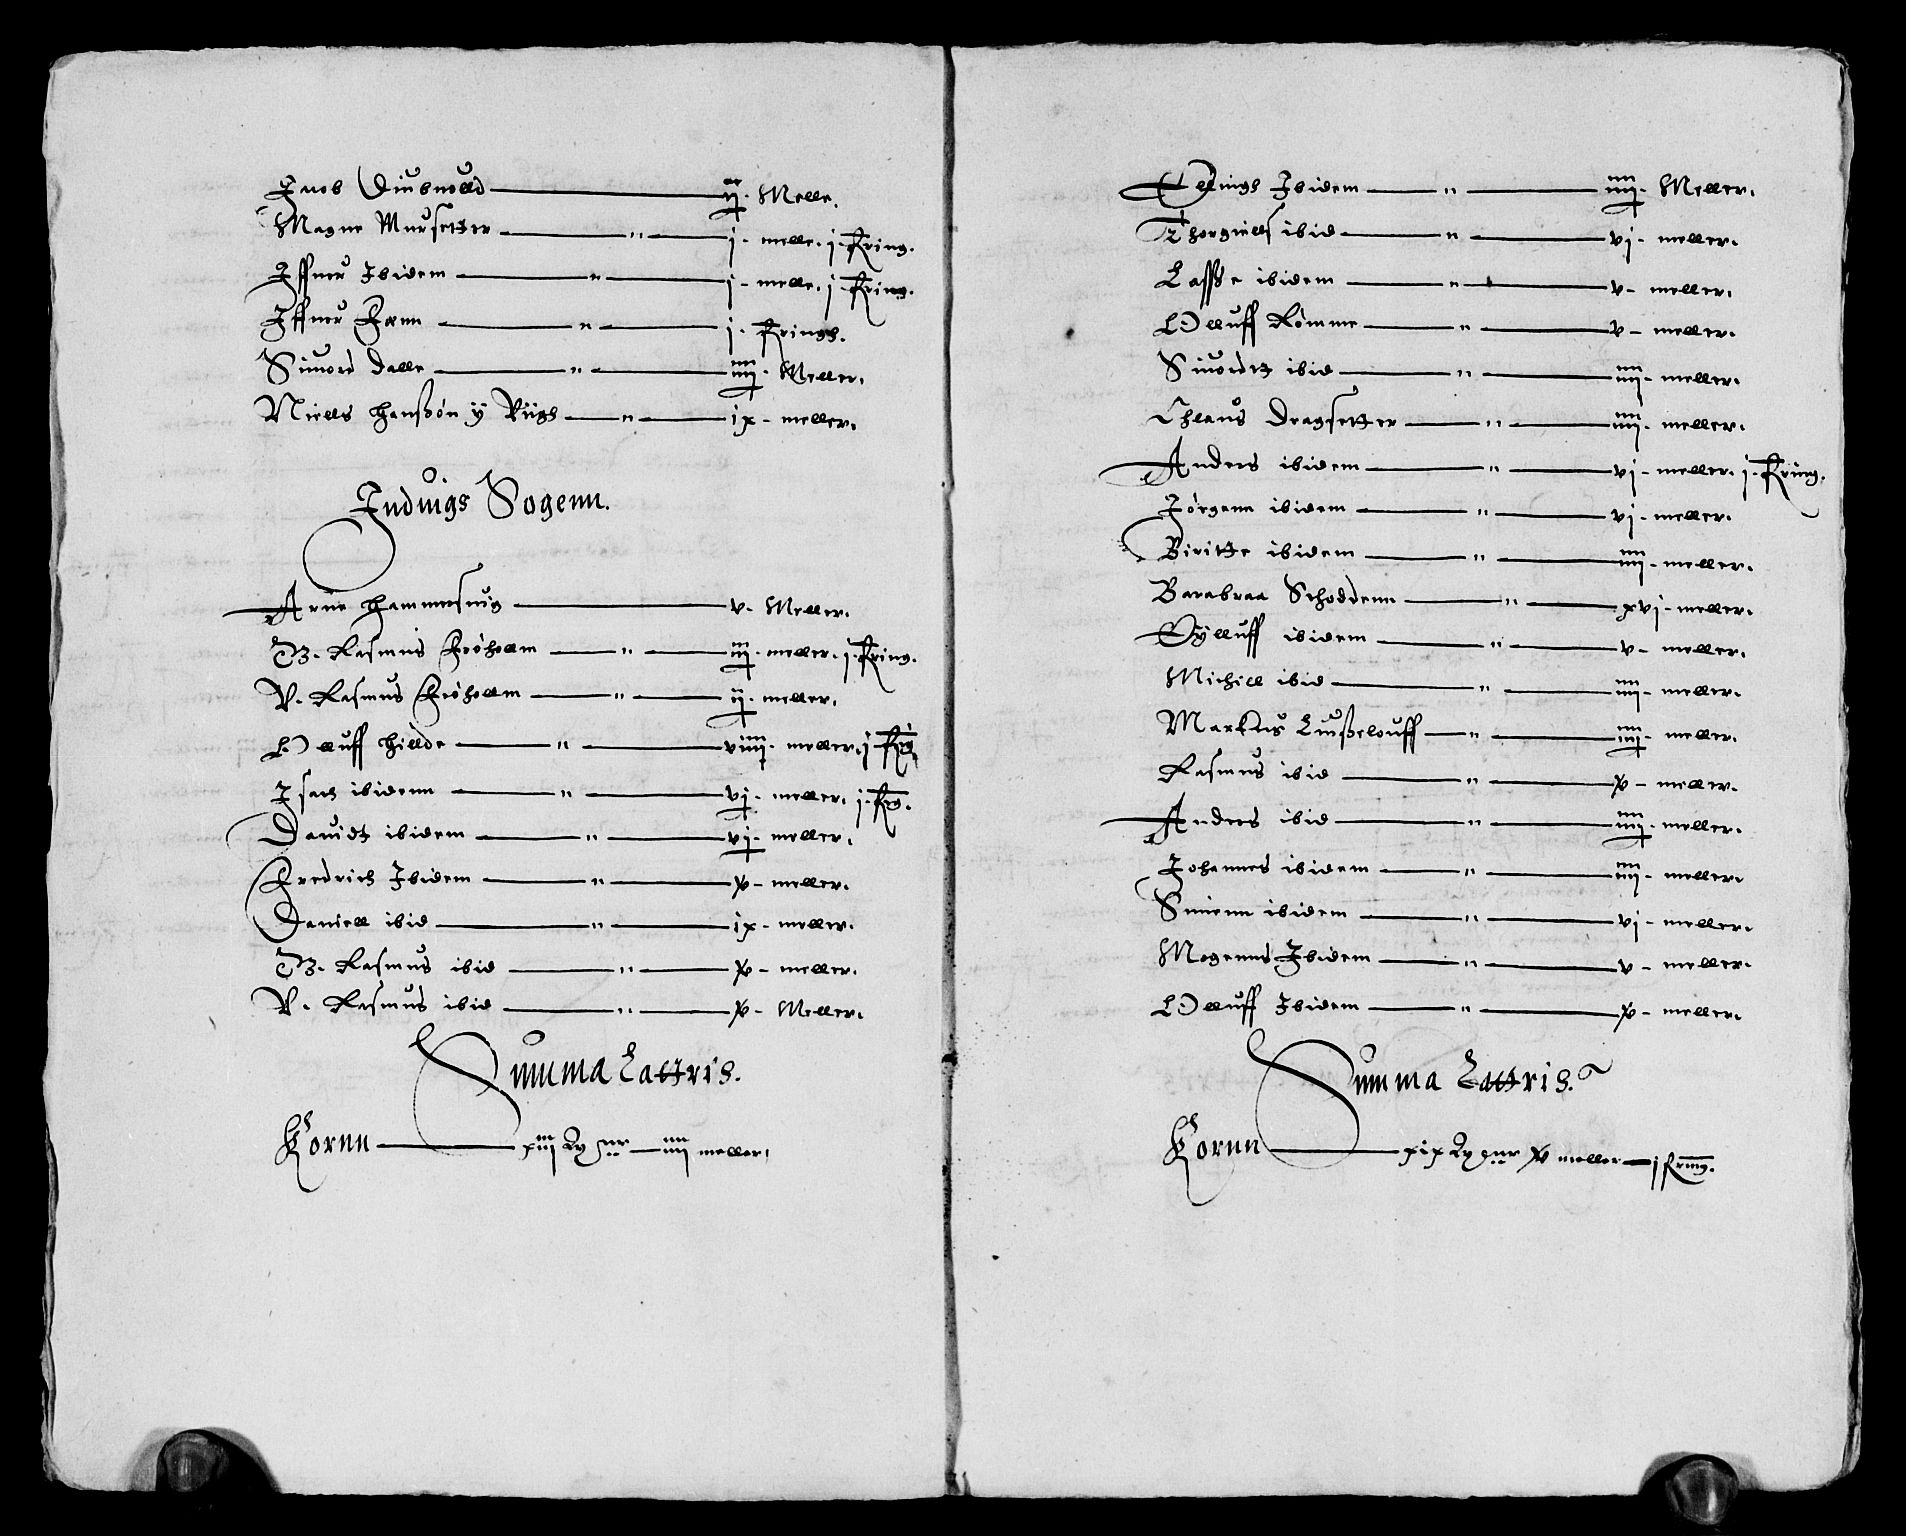 Jacob Diubuold — ij. Melle.
Magne Mursetter — " — j - melle. j. Kring.
Iffuer Ibidem — " — j - melle. j Kring.
Iffuer Fænn — " — j. Kringh.
Siuord Dalle — " — iiij. Meller.
Niells Hanßøn ÿ Viigh — " — ix - meller.
Induigs Sogenn.
Arne Hammersuig — v. Meller.
B. Rasmus Frøholm — " — iij. meller. j. Kring.
V. Rasmus Frøholm — " — ij. meller.
Olluff Hillde — " — viiij - meller. j Krg.
Isach ibidenn — " — vj. meller. j. Krg.
Dauidt ibidem — " — vj - meller.
Fredrich Ibidem — " — x - meller.
Daniell ibid — " — ix - meller.
B. Rasmus ibid — " — x - meller.
V. Rasmus ibid — " — x - Meller.
Summa Lattris.
Kornn — xiij — iiij meller.
Ellingh Ibidem — " — iiij. Meller.
Thorgiells ibid — " — vj - meller.
Lasße ibidem — " — v - meller.
Olluff Rømme — " — v - meller.
Siuordt ibid — " — iiij - meller.
Chlaus Dragsetter — " — iiij. meller.
Anders ibidem — " — vj - meller. j. Kring.
Jørgenn ibidem — " — vj - meller.
Biritte ibidem — " — iiij - meller.
Barabraa Schoddenn — " — xvj - meller.
Øÿlluff ibidem — " — v - meller.
Michill ibid — " — iiij - meller.
Markus Lußelouff — " — iiij - meller.
Rasmus ibid — " — x - meller.
Anders ibid — " — iiij - meller.
Johannes ibidem — " — iiij - meller.
Simenn ibidem — " — vj - meller.
Mogenns Ibidem — " — v - meller.
Olluff Ibidem — " — x - meller.
Summa Lattris.
Kornn — xix — x meller — j Kring.